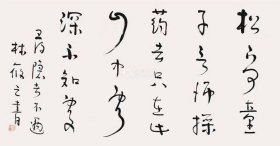 松下问童
子言师采
药去只在此
山中云
深不知处
寻隐者不遇